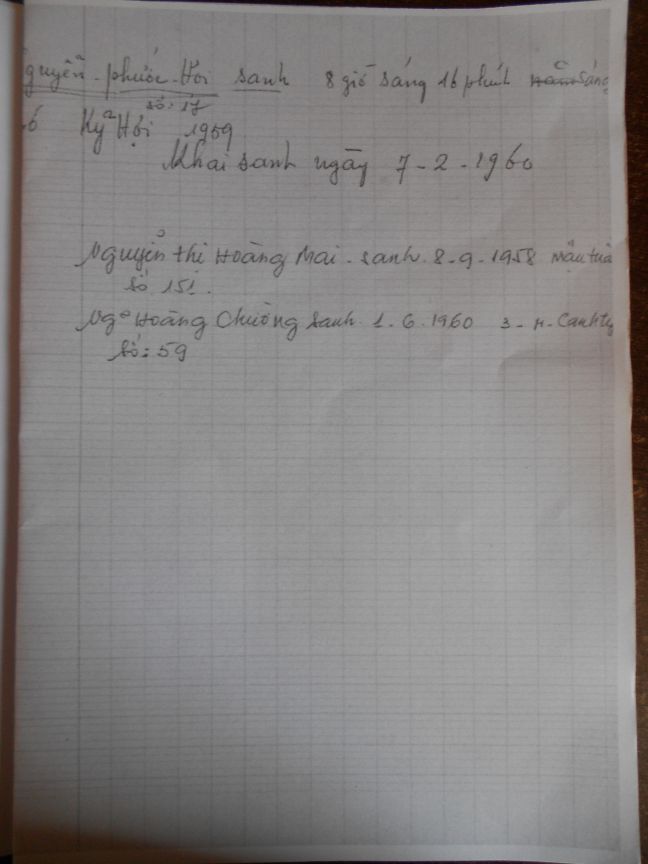 guyễn - phước - Hơi sanh 8 giờ sáng 16 phút sáng
số: 17
Kỷ Hợi 1959
Khai sanh ngày 7 - 2 - 1960
Nguyễn thị Hoàng Mai - sanh. 8 - 9 - 1958 Mậu tuấ
Số 151.
Ngô Hoàng Chường Sanh. 1. 6. 1960 3 - H - Canh tý
Số: 59